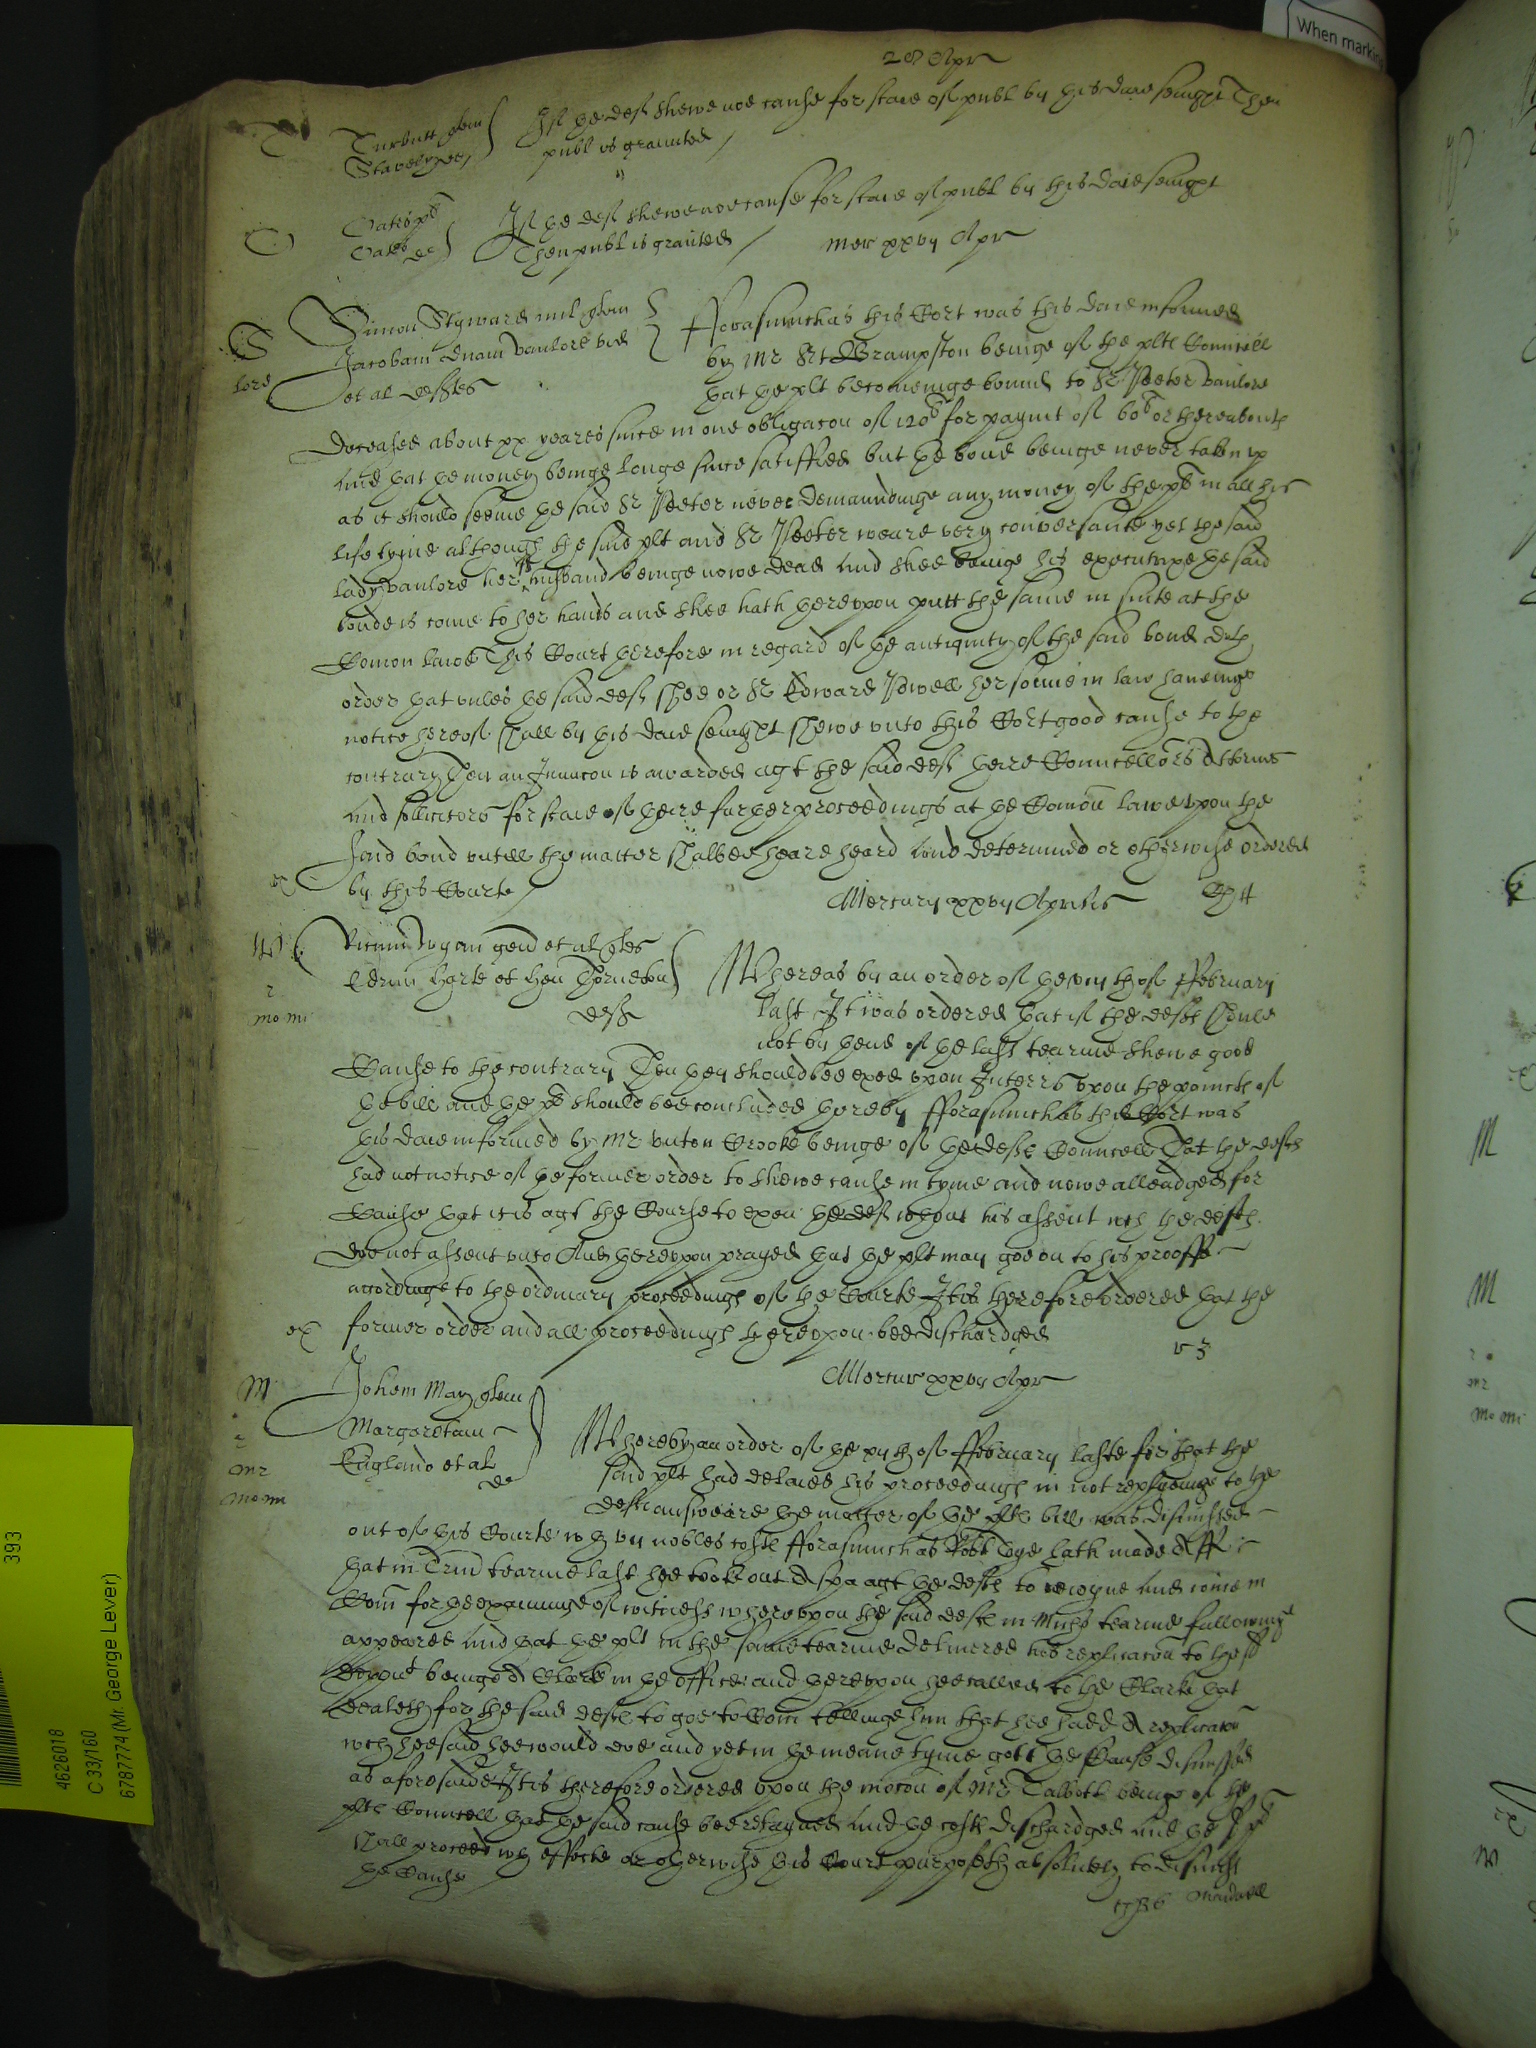 28 Apr
When markin
Turbutt quer If the def shewe noe cause for staie of publ by this daie sevenight Then
Staveley def publ is graunted
Oates pl If the def shewe noe cause for staie of publ by this daie sevenight
Oates def Then publ is graunted Mer xxvij Apr
Simon Styward mil quer Forasmuch as this Cort was this daie informed
Jacobam dnam vanlore vid by Mr Brampston beinge of the plts Councell
lore et al deftes that the plt becomeinge bound to Sr Peeter vanlore
deceased about xx yeares since in one obligacon of 120l for paymt of 60l or thereabouts
and that the money beinge longe since satisfied but the bond beinge never taken up
as it should seeme the said Sr Peeter never demaundinge any money of the pl in all his
life tyme although the said plt and Sr Peeter weare very conversante yet the said
lady vanlore her husband beinge nowe dead and shee beinge his executrixe the said
bonde is come to her hands and shee hath thereupon putt the same in suite at the
Comon lawe This Court therefore in regard of the antiquity of the said bond doth
order that unles the said def shee or Sr Edward Powell her sonne in law haveinge
notice hereof shall by this daie sevenight shewe unto this Cort good cause to the
contrary Then an Iniuncon is awarded agt the said def there Councellors Attornies
and sollicitors for staie of theire further proceedings at the Comon lawe upon the
said bond untill the matter shalbee heare heard and determined or otherwise ordered
ex by this Courte Mercury xxvij Aprilis
W Wygan gen et al quer
Edrum Harte et Hen Thorneton Whereas by an order of the viijth of February
mo mi deft last It was ordered that if the defts should
not by thend of the last tearme shewe good
Cause to the contrary Then they should bee exed upon Interrs upon the pointes of
the bill and the pl should bee concluded thereby Forasmuch as this Cort was
this daie informed by Mr Unton Crooke beinge of the defts Councell That the defts
had not notice of the former order to shewe cause in tyme and nowe alleadged for
Cause that it is agt the Course to exen the def wthout his assent wch the defts
doe not assent unto And thereupon prayed that the plt may goe on to his prooffe
accordinge to the ordinary proceedings of the Courte It is therefore ordered that the
ex former order and all proceedings thereupon bee dischardged
M Johem May quer Mercur xxvij Apr
Margaretam Where by an order of the xijth of February laste for that the
mr England et al said plt had delaied his proceedings in not replyeinge to the
mo mi de defts answeare the matter of the plts bill was dismissed
out of this Courte wth vij nobles costs Forasmuch as Robt hath made Aff
that in Trin tearme last hee tooke out A spa agt the defts to reioyne and ioine in
Com for the examininge of witnesses whereupon the said defts in Michs tearme followinge
appeared and that the plt in the same tearme delivered his replicacon to the
beinge A Clarke in the office and thereupon hee called to the Clarke that
dealeth for the said defts to goe to Com tellinge him that hee hadd A replicacon
wch hee said hee would doe and yet in the meane tyme gott the Cause dismissed
as aforesaid It is therefore ordered upon the mocon of Mr Talbott beinge of the
plts Councell that the said cause bee retayned and the costs dischardged and the pl
shall proceed wth effecte or otherwise this Court purposeth absolutely to dismiss
the Cause
393
4626018
C 33/160
6787774 (Mr. George Lever)